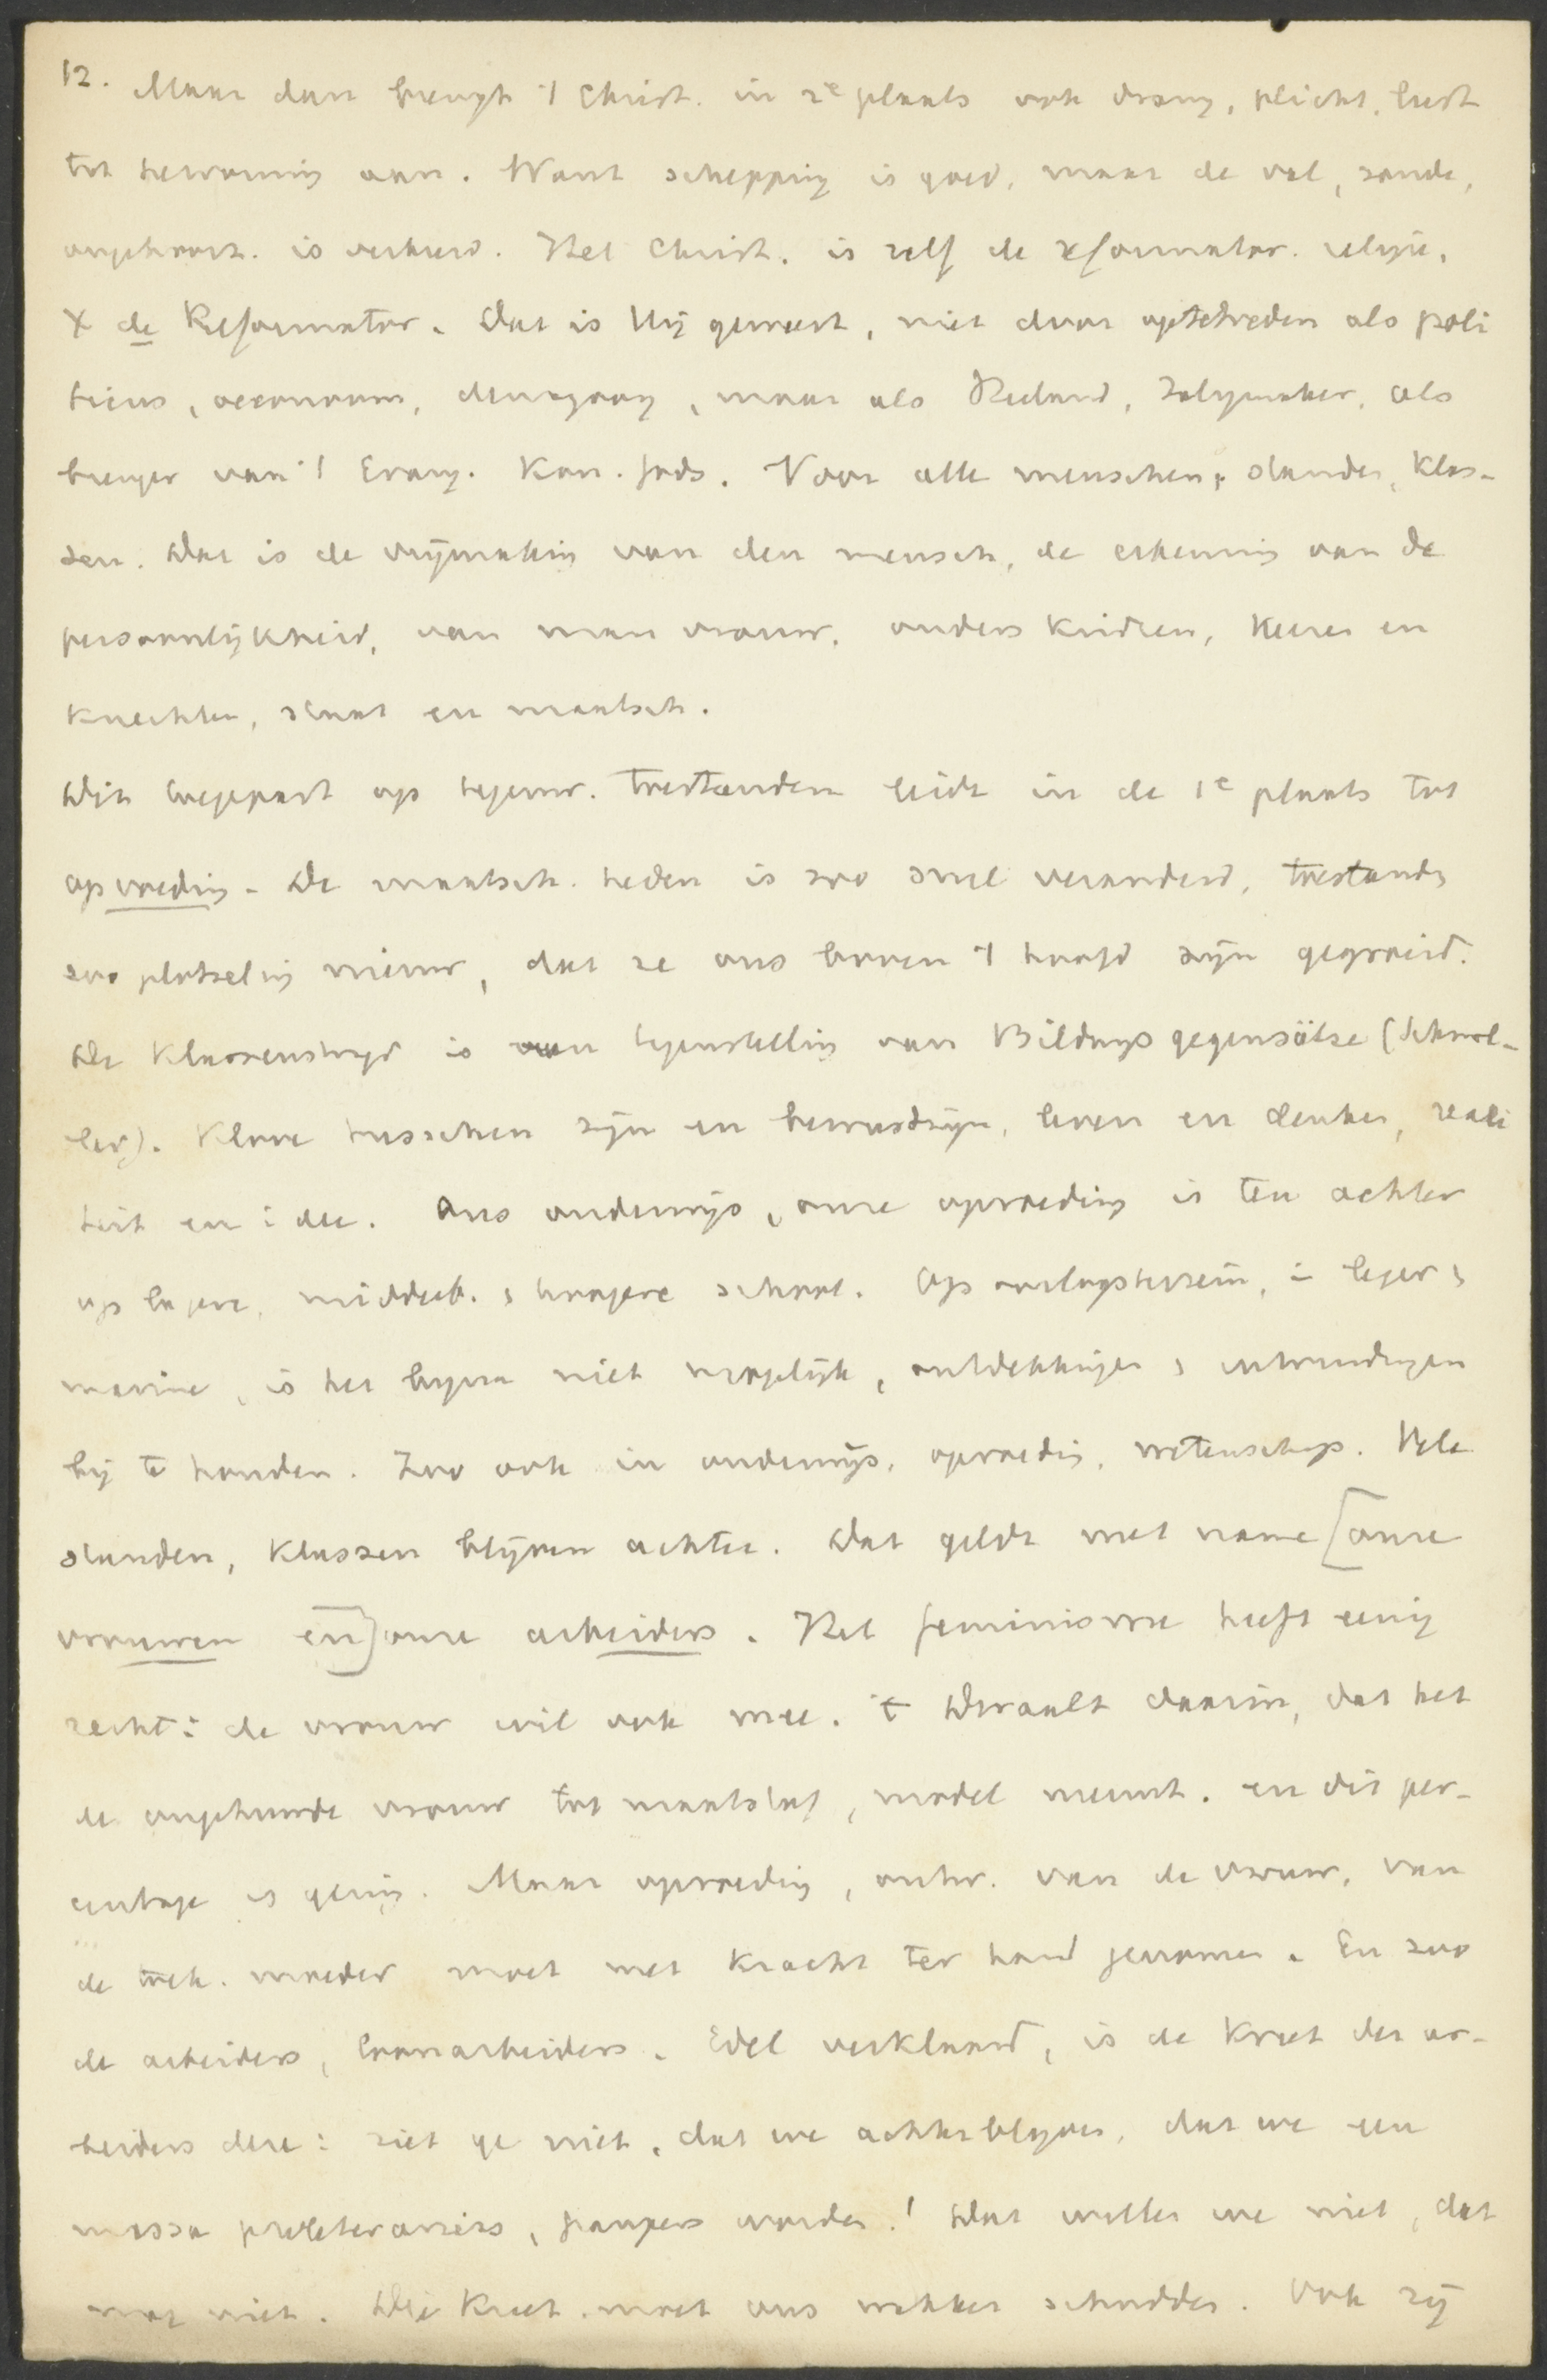 12. Maar dan brengt 't Christ. in 2e plaats ook drang, plicht, lust
tot hervorming aan. Want schepping is goed, maar de val, zonde,
ongehoorz. is verkeerd. Het Christ. is zelf de reformator. religie.
X de Reformator. Dat is Hij geweest, niet door optetreden als poli
ticus, oeconoom, demagoog, maar als Heiland, Zaligmaker, als
brenger van 't Evang. Kon. Gods. Voor alle menschen, standen, klas-
sen. Dat is de vrijmaking van den mensch, de erkenning van de
persoonlijkheid, van man vrouw, ouders kindren, heeren en
knechten, staat en maatsch.
Dit toegepast op tegenw. toestanden leidt in de 1e plaats tot
opvoeding. De maatsch. heden is zoo snel veranderd, toestands
zoo plotseling nieuw, dat ze ons boven 't hoofd zijn gegroeid.
De klassenstrijd is een tegenstelling van Bildungsgegensätze (Schmol-
ler). Klove tusschen zijn en bewustzijn, leven en denken, reali
teit en idee. Ons onderwijs, onze opvoeding is ten achter
op lagere, middelb. & hoogere school. Op oorlogsterrein, in leger &
marine, is het bijna niet mogelijk, ontdekkingen & uitvindingen
bij te houden. Zoo ook in onderwijs, opvoeding, wetenschap. Vele
standen, klassen blijven achter. Dat geldt met name [onze
vrouwen en] onze arbeiders. Het feminisme heeft eenig
recht: de vrouw wil ook mee. 't Dwaalt daarin, dat het
de ongehuwde vrouw tot maatstaf, model neemt. en dit per-
centage is gering. Maar opvoeding, ontw. van de vrouw, van
de moeder moet met kracht ter hand genomen. En zoo
de arbeiders, loonarbeiders. Edel verklaard, is de kreet der ar-
beiders deze: ziet ge niet, dat we achterblijven, dat we een
massa proletariërs, paupers worden! Dat willen we niet, dat
mag niet. Die kreet moet ons wakker schudden. Ook zij